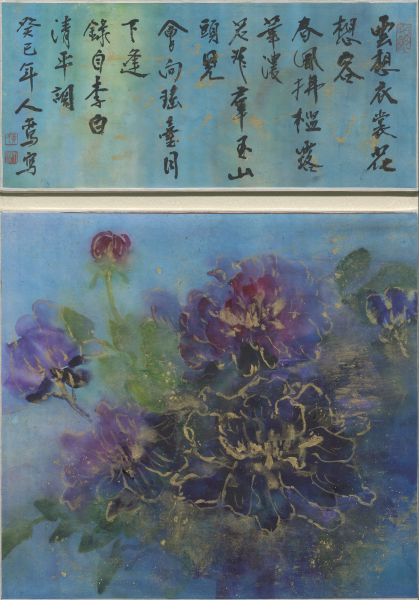 雲想衣裳花
想容
春風拂檻露
華濃
若非羣玉山
頭見
會向瑤臺月
下逢
錄自李白
清平調
癸巳年人寫